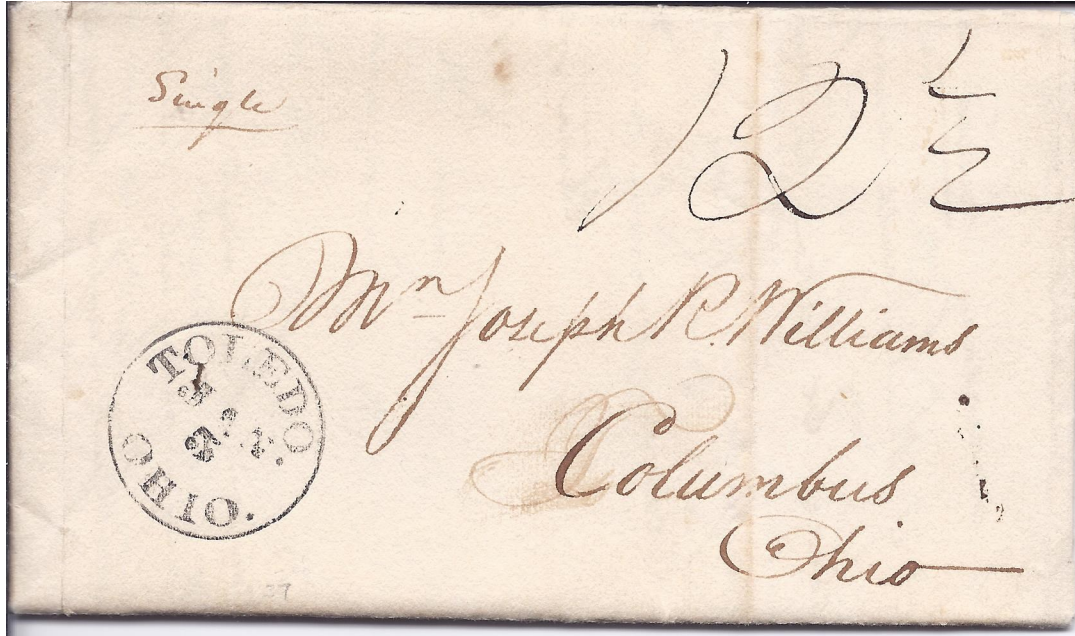 Single
12 1/2
Mr Joseph R. Williams
Columbus
Ohio
TOLEDO.
OHIO.